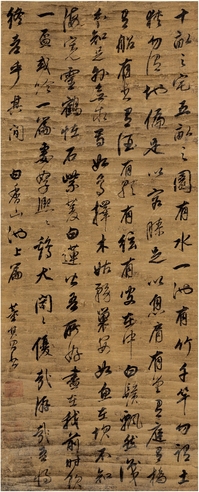 十畝之宅五畝之園有水一池有竹千竿勿謂土
狹勿謂地偏足以容膝足以息肩有堂有庭有橋
有船有書有酒有歌有絃有叟在中白鬚飄然識
分知足外無求焉如鳥擇木姑務巢安如魚在坎不知
海寬靈鶴怪石紫菱白蓮皆吾所好盡在我前時飲
一盃或吟一篇妻孥熙々雞犬閒々優哉游哉吾將
終老乎其間 白香山池上篇 董其昌書